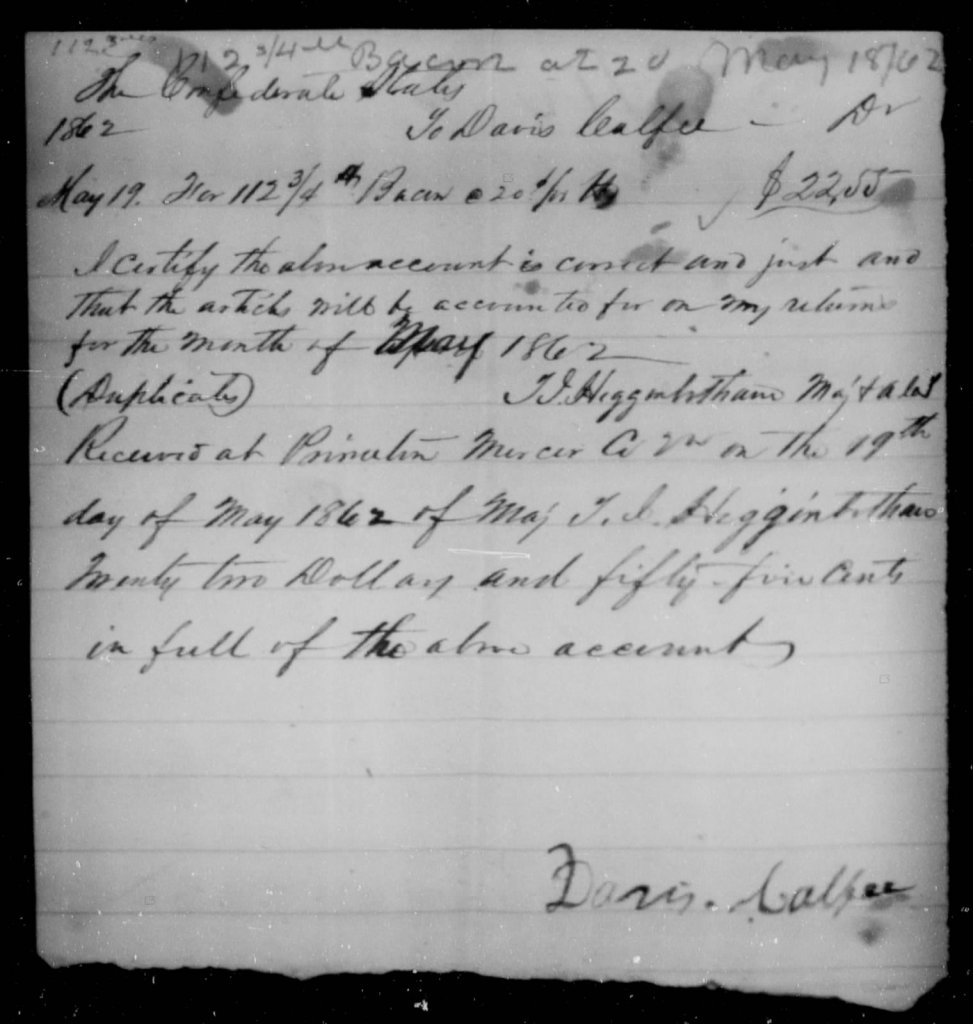 112 3/4 lb Bacon at 20 May 18/62
The Confederate States
1862 To Davis Calfee Dr
May 19. For 112 3/4 lb Bacon @ 20 $22,55
I certify the above account is correct and just and
that the articles will be accounted for on my returns
for the month of May 1862
(Duplicate) T. J. Higginbotham Maj &
Received at Princeton Mercer Co Va on the 19th
day of May 1862 of Maj T. J. Higginbotham
Twenty two Dollars and fifty-five cents
in full of the above account
Davis. Calfee